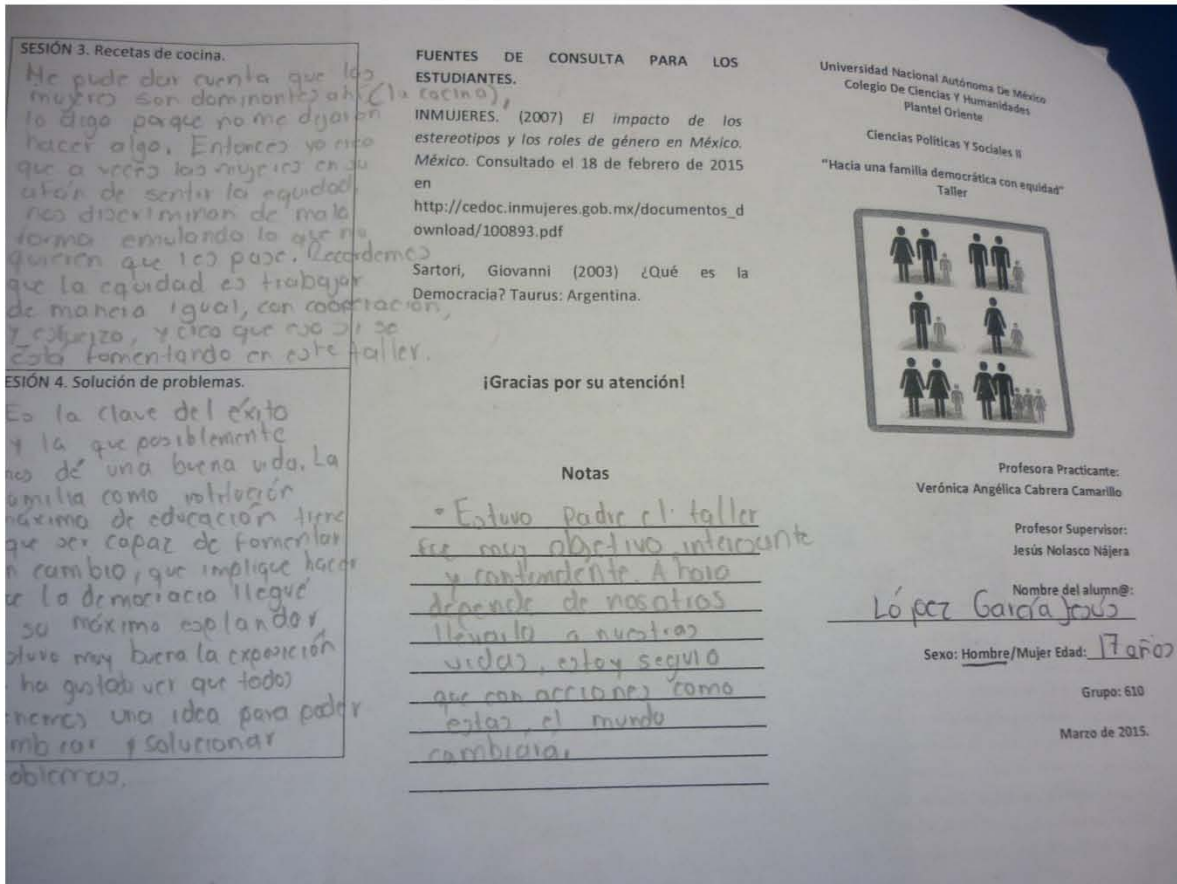 SESIÓN 3. Recetas de cocina.
Me pude dar cuenta que las
mujeres son dominantes ahí (la cocina),
lo digo porque no me dejaron
hacer algo. Entonces yo creo
que a veces las mujeres en su
afán de sentir la equidad
nos discriminan de mala
forma emulando lo que no
quieren que les pase. Recordemos
que la equidad es trabajar
de manera igual, con cooperación,
y esfuerzo, y creo que eso si se
está fomentando en este taller.
ESIÓN 4. Solución de problemas.
Es la clave del éxito
y la que posiblemente
nos dé una buena vida. La
amilia como
máxima de educación tiene
que ser capaz de fomentar
n cambio, que implique hacer
la democracia llegué
su máximo esplandor,
stuvo muy buena la exposición
ha gustado ver que todos
enemos una idea para poder
mbiar y solucionar
oblemas.
FUENTES DE CONSULTA PARA LOS
ESTUDIANTES.
INMUJERES. (2007) El impacto de los
estereotipos y los roles de género en México.
México. Consultado el 18 de febrero de 2015
en
http://cedoc.inmujeres.gob.mx/documentos_d
ownload/100893.pdf
Sartori, Giovanni (2003) ¿Qué es la
Democracia? Taurus: Argentina.
¡Gracias por su atención!
Notas
• Estuvo Padre el taller
fue muy objetivo interesante
y contundente. Ahora
depende de nosotros
llevarlo a nuestras
vidas, estoy seguro
que con acciones como
estas, el mundo
cambiara.
Universidad Nacional Autónoma De México
Colegio De Ciencias Y Humanidades
Plantel Oriente
Ciencias Políticas Y Sociales II
"Hacia una familia democrática con equidad"
Taller
Profesora Practicante:
Verónica Angélica Cabrera Camarillo
Profesor Supervisor:
Jesús Nolasco Nájera
Nombre del alumn@:
López García Jesús
Sexo: Hombre/Mujer Edad: 17 años
Grupo: 610
Marzo de 2015.